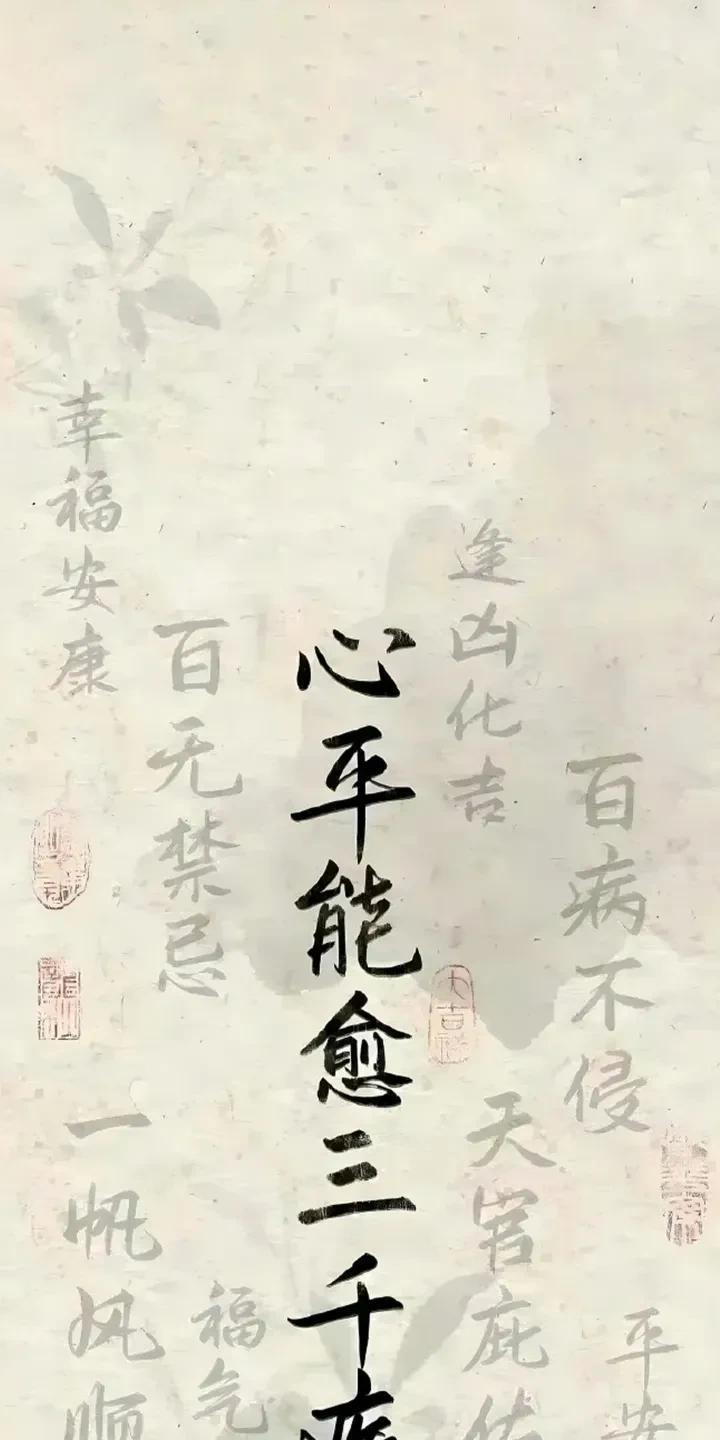 幸福安康
百无禁忌
逢凶化吉
心平能愈三千疾
百病不侵
大吉祥
天官庇佑
一帆风顺
福气
平安